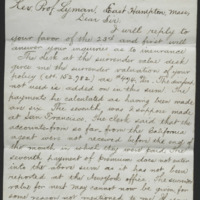 Rev. Prof Lyman, East Hampton, Mass,
Dear Sir,
I will reply to
your favor of the 23rd and first will
answer your inquiries as to insurance
The clerk at the surrender value desk
gave me the surrender valuation of your
policy (No. 152,782) as
not used is added on in this sum. The
payments he calculated as having been made
was six. The seventh, was I suppose made
at San Francisco. The clerk said that the
accounts from so far, from the California
agent were not received before the end of
the month in which they were paid. The
seventh payment of Premium does not enter
in the above sum as it has not been
reported at the New York office. The same
value for next may cannot now be given for
some reason not mentioned to me